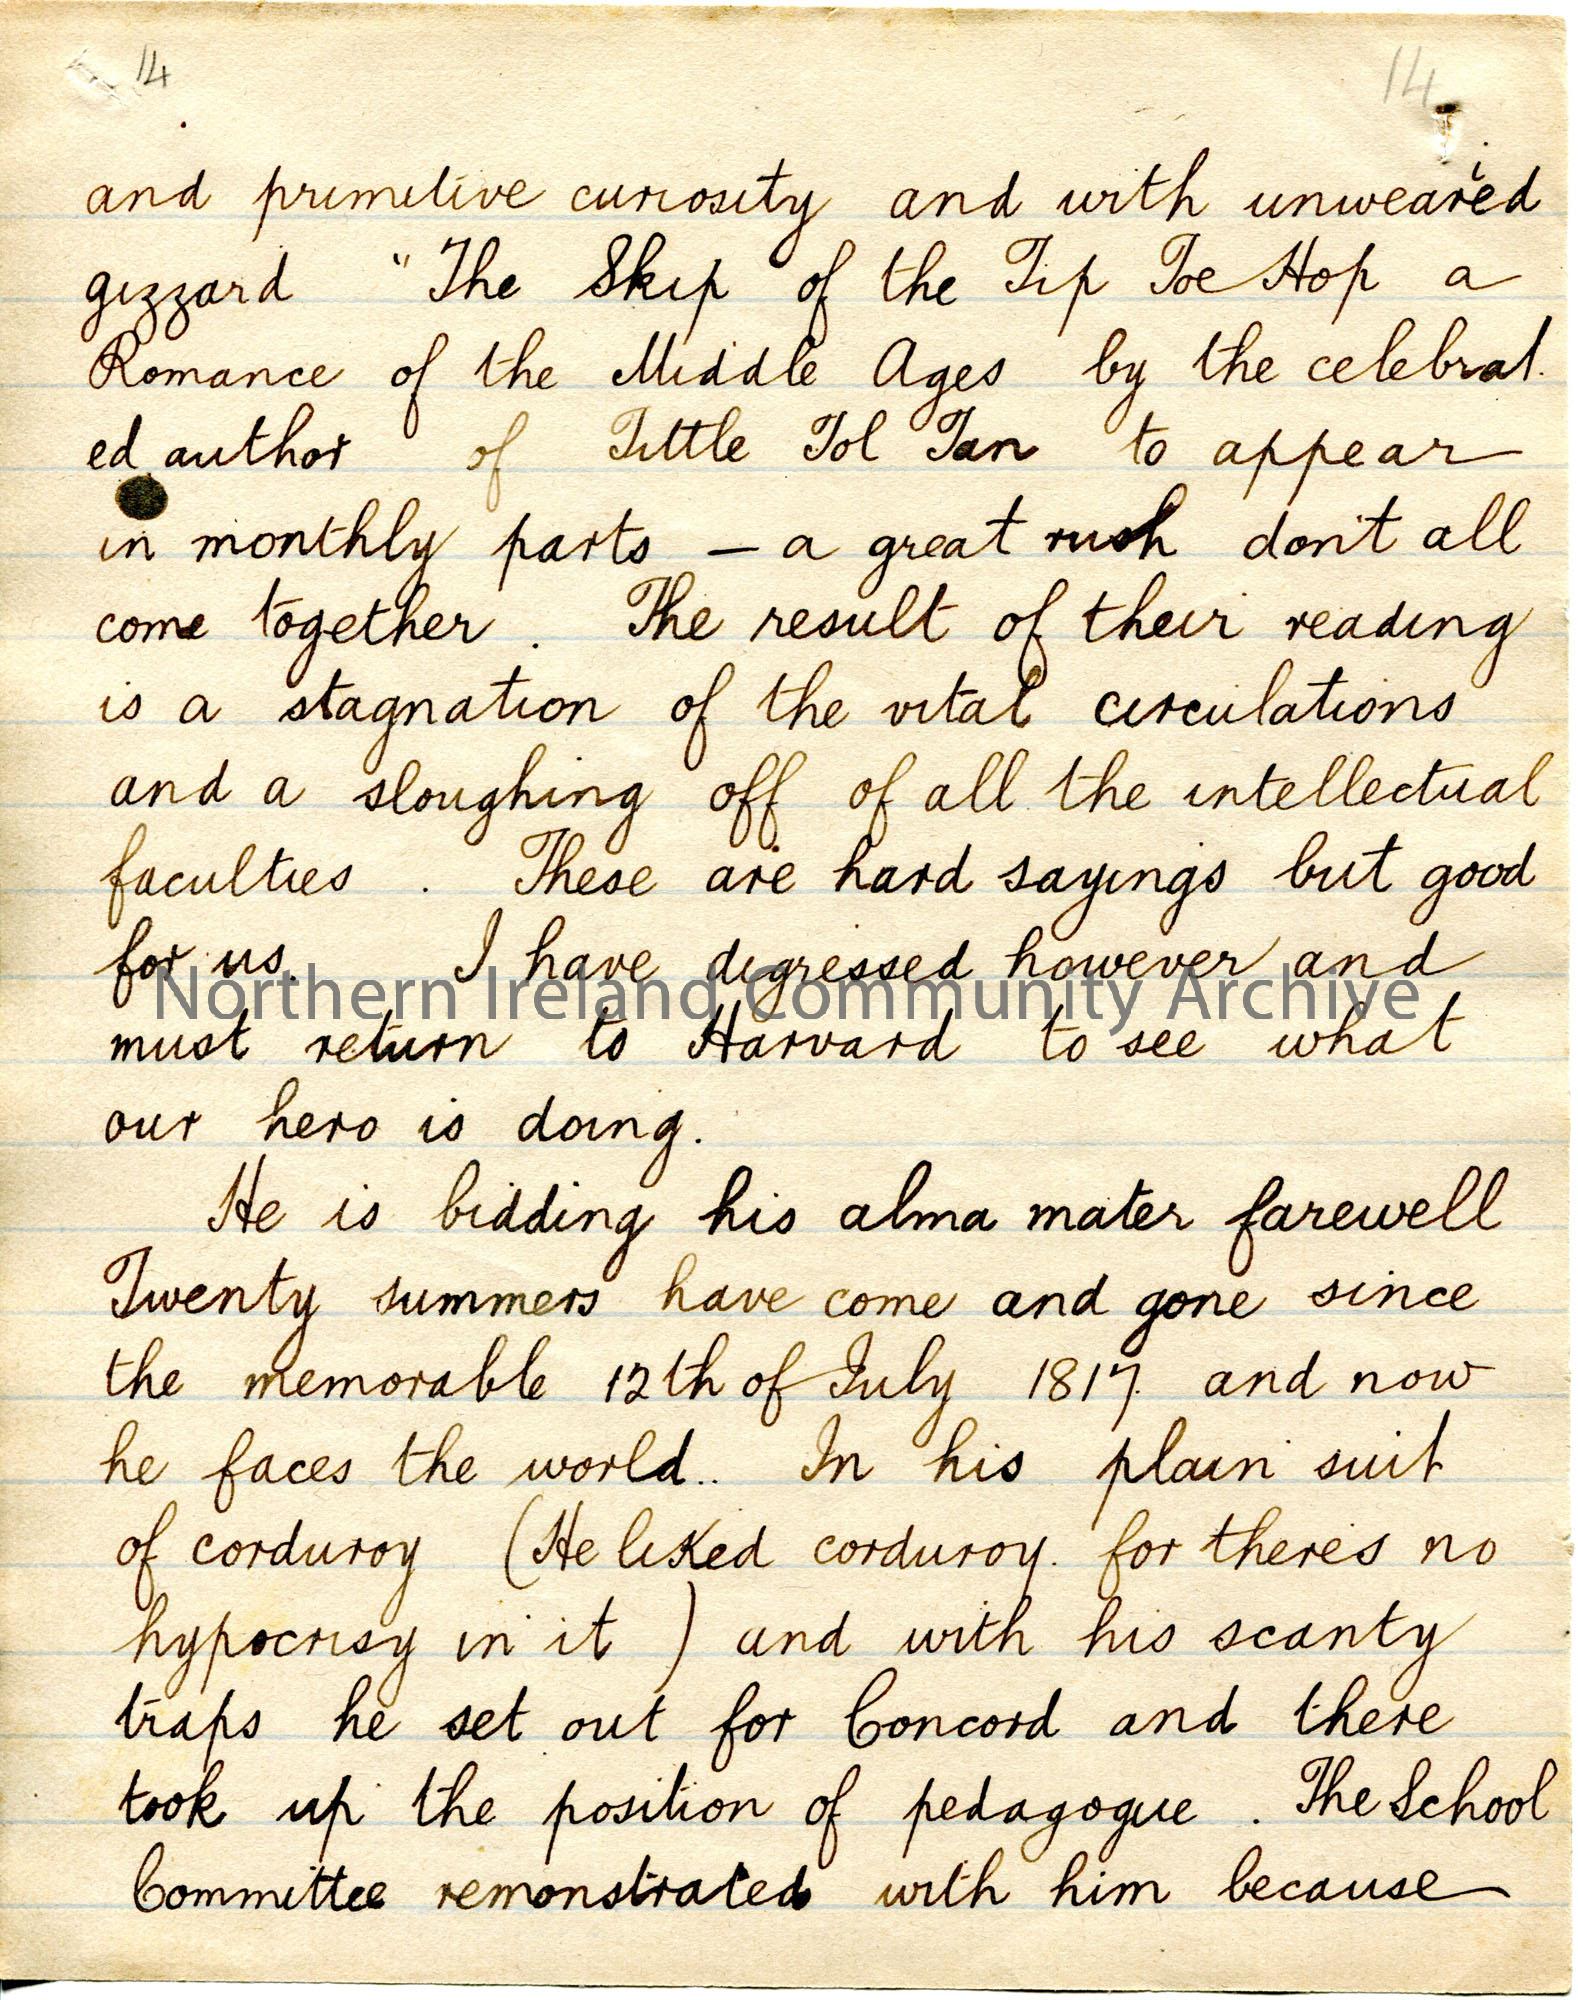 14 14
and primitive curiosity and with unwearied
gizzard "The Skip of the Tip Toe Hop a
Romance of the Middle Ages by the celebrat.
ed author of Tittle Tol Tan to appear
in monthly parts — a great rush don't all
come together. The result of their reading
is a stagnation of the vital circulations
and a sloughing off of all the intellectual
faculties. These are hard sayings but good
for us. I have digressed however and
Northern Ireland Community Archive
must return to Harvard to see what
our hero is doing.
He is bidding his alma mater farewell
Twenty summers have come and gone since
the memorable 12th of July 1817. and now
he faces the world.. In his plain suit
of corduroy (He liked corduroy. for there's no
hypocrisy in it) and with his scanty
traps he set out for Concord and there
took up the position of pedagogue. The School
Committee remonstrated with him because